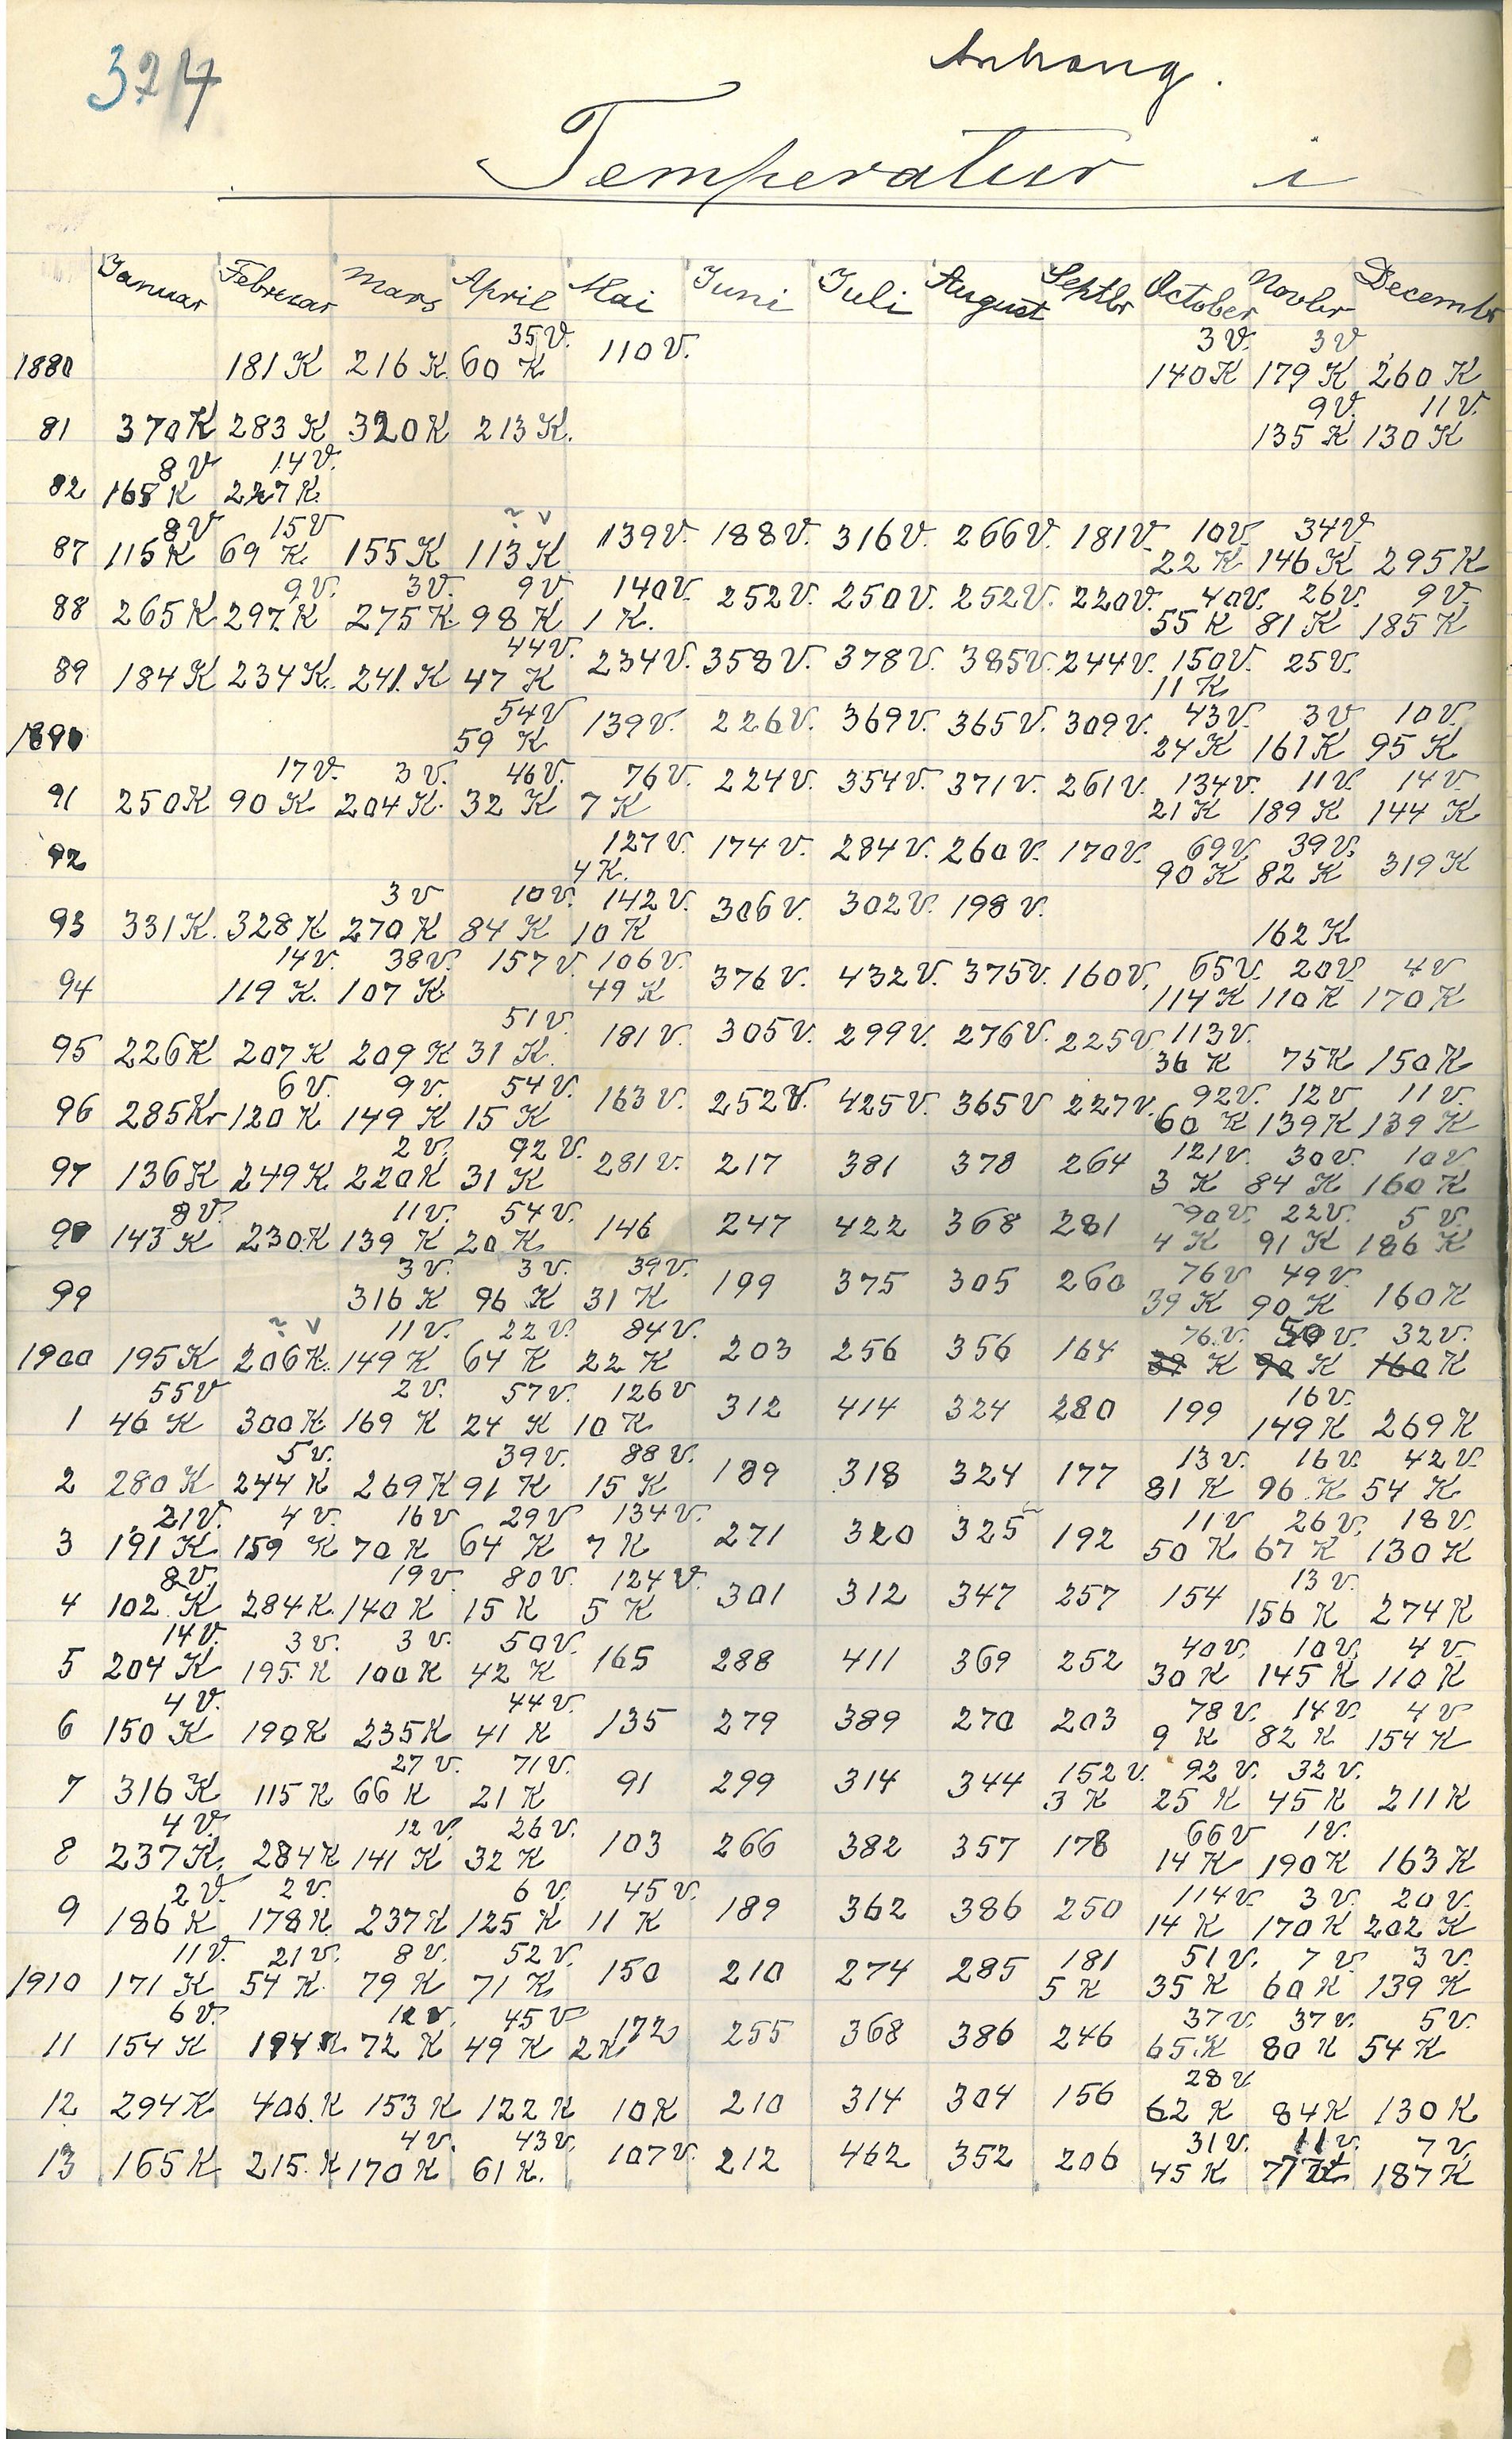 324
Anhang.
Temperatur i
Januar Februar Mars April Mai Juni Juli August Septbr October Novbr Decembr
35 V. 110 V. 3 V. 3 V
1880 181 K 216 K 60 K 140 K 179 K 260 K
9 V. 11 V.
81 370 K 283 K 320 K 213 K. 135 K 130 K
8 V 14 V.
82 168 K 227 K.
8 V 15 V ~ v 139 V. 188 V. 316 V. 266 V. 181 V. 10 V. 34 V.
87 115 K 69 K. 155 K 113 K 22 K 146 K 295 K
9 V. 3 V. 9 V. 140 V. 252 V. 250 V. 252 V. 220 V. 40 V. 26 V. 9 V.
88 265 K 297 K 275 K. 98 K 1 K. 55 K 81 K 185 K
44 V. 234 V. 358 V. 378 V. 385 V. 244 V. 150 V. 25 V.
89 184 K 234 K. 241. K 47 K 11 K
54 V 139 V. 226 V. 369 V. 365 V. 309 V. 43 V. 3 V 10 V.
1890 59 K 24 K 161 K 95 K
17 V. 3 V. 46 V. 76 V. 224 V. 354 V. 371 V. 261 V. 134 V. 11 V. 14 V.
91 250 K 90 K 204 K. 32 K 7 K 21 K 189 K 144 K
127 V. 174 V. 284 V. 260 V. 170 V. 69 V. 39 V.
92 4 K. 90 K 82 K 319 K
3 V 10 V. 142 V. 306 V. 302 V. 198 V.
93 331 K. 328 K 270 K 84 K 10 K 162 K
14 V. 38 V. 157 V. 106 V. 376 V. 432 V. 375 V. 160 V. 65 V. 20 V. 4 V
94 119 K. 107 K 49 K 114 K 110 K 170 K
51 V. 181 V. 305 V. 299 V. 276 V. 225 V 113 V.
95 226 K 207 K 209 K 31 K 36 K 75 K 150 K
6 V. 9 V. 54 V. 163 V. 252 V. 425 V. 365 V 227 V. 92 V. 12 V 11 V.
96 285 Kr 120 K 149 K 15 K 60 K 139 K 139 K
2 V. 92 V. 281 V. 217 381 378 264 121 V. 30 V. 10 V
97 136 K 249 K 220 K 31 K 3 K 84 K 160 K
8 V. 11 V. 54 V. 146 247 422 368 281 90 V. 22 V. 5 V.
98 143 K 230 K 139 K 20 K 4 K 91 K 186 K
3 V. 3 V. 39 V. 199 375 305 260 76 V 49 V.
99 316 K 96 K 31 K 39 K 90 K 160 K
~ v 11 V. 22 V. 84 V. 203 256 356 164 76. V. 50 V. 32 V.
1900 195 K 206 K. 149 K 64 K 22 K 39 K 90 K 160 K
55 V 2 V. 57 V. 126 V 312 414 324 280 199 16 V.
1 46 K 300 K 169 K 24 K 10 K 149 K 269 K
5 V. 39 V. 88 V. 189 318 324 177 13 V. 16 V. 42 V.
2 280 K 244 K 269 K 91 K 15 K 81 K 96. K 54 K
21 V. 4 V. 16 V 29 V 134 V. 271 320 325 192 11 V 26 V. 18 V.
3 191 K 159 K 70 K 64 K 7 K 50 K 67 K 130 K
8 V. 19 V. 80 V. 124 V. 301 312 347 257 154 13 V.
4 102 K 284 K. 140 K 15 K 5 K 156 K 274 K
14 V. 3 V. 3 V. 50 V. 165 288 411 369 252 40 V. 10 V. 4 V.
5 204 K 195 K 100 K 42 K 30 K 145 K 110 K
4 V. 44 V. 135 279 389 270 203 78 V. 14 V. 4 V
6 150 K 190 K 235 K 41 K 9 K 82 K 154 K
27 V. 71 V. 91 299 314 344 152 V. 92 V. 32 V.
7 316 K 115 K 66 K 21 K 3 K 25 K 45 K 211 K
4 V. 12 V. 26 V. 103 266 382 357 178 66 V 1 V.
8 237 K. 284 K 141 K 32 K 14 K 190 K 163 K
2 V. 2 V. 6 V. 45 V. 189 362 386 250 114 V. 3 V. 20 V.
9 186 K 178 K 237 K 125 K 11 K 14 K 170 K 202 K
11 V. 21 V. 8 V. 52 V. 150 210 274 285 181 51 V. 7 V. 3 V.
1910 171 K 54 K 79 K 71 K 5 K 35 K 60 K 139 K
6 V. 12 V. 45 V 172 255 368 386 246 37 V. 37 V. 5 V.
11 154 K 194 K 72 K 49 K 2 K 65. K 80 K 54 K
28 V
12 294 K 406. K 153 K 122 K 10 K 210 314 304 156 62 K 84 K 130 K
4 V. 43 V. 107 V. 212 462 352 206 31 V. 11 V. 7 V.
13 165 K 215. K 170 K 61 K. 45 K 77 K 187 K